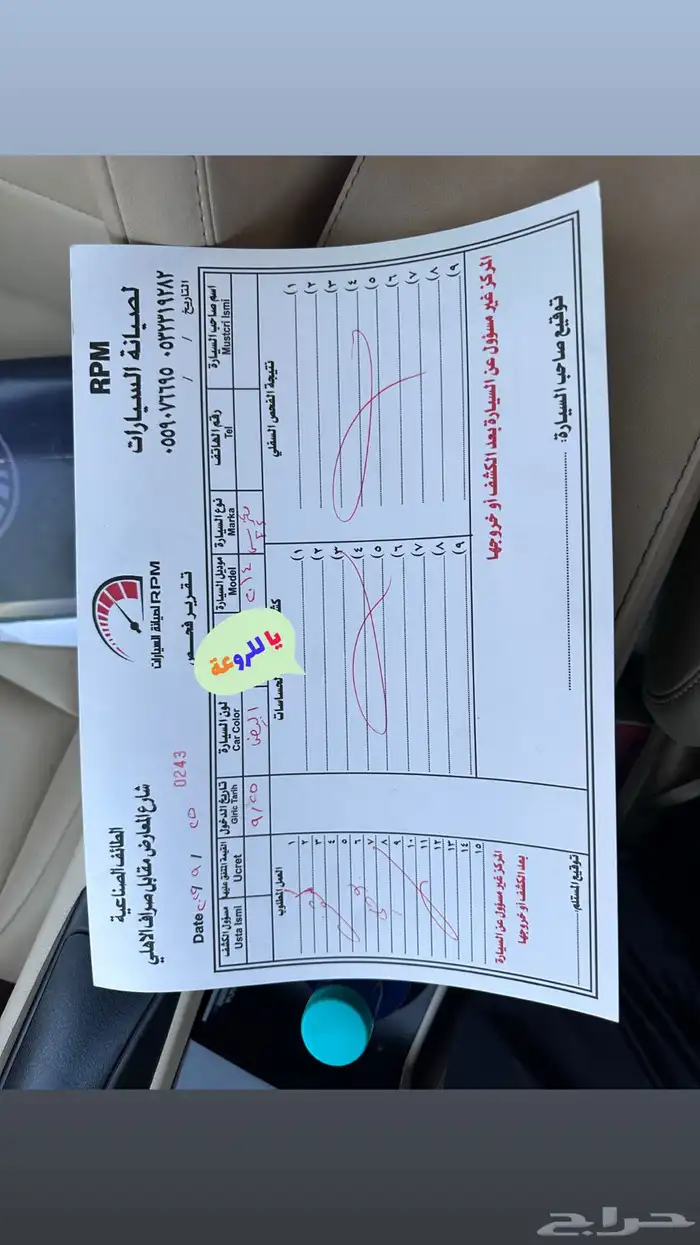 RPM
لصيانة السيارات
٠٥٥٩٠٧٦٦٩٥ ٠٥٣٢٣١٩٢٨٢
التاريخ / /
RPM لصيانة السيارات
تقرير فحص
الطائف الصناعية
شارع المعارض مقابل صراف الاهلي
0243
Date
اسم صاحب السيارة
Mustcri Ismi
رقم الهاتف
Tel
نوع السيارة
Marka
موديل السيارة
Model
لون السيارة
Car Color
تاريخ الدخول
Giric Tarih
القيمة المتفق عليها
Ucret
مسؤول الكشف
Usta Ismi
٩/٢٥
يا للروعة
نتيجة الفحص السفلي
١)
٢)
٣)
٤)
٥)
٦)
٧)
٨)
٩)
الحساسات
١)
٢)
٣)
٤)
٥)
٦)
٧)
٨)
٩)
العمل المطلوب
١
٢
٣
٤
٥
٦
٧
٨
٩
١٠
١١
١٢
١٣
١٤
١٥
المركز غير مسؤول عن السيارة بعد الكشف أو خروجها
المركز غير مسؤول عن السيارة
بعد الكشف أو خروجها
توقيع صاحب السيارة:
توقيع المستلم:
حراج